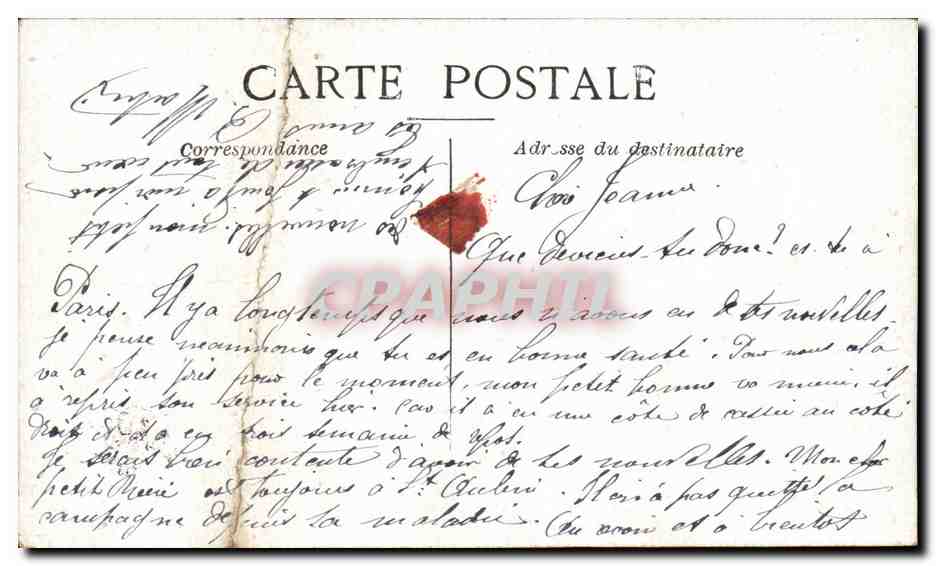 CARTE POSTALE
Correspondance
Adresse du destinataire
Joanna
Que deviens-tu donc? es-tu à
Paris. Il y a longtemps que nous n'avons eu de tes nouvelles.
je pense néanmoins que tu es en bonne santé. Pour nous cela
va à peu près pour le moment, mon petit homme va mieux, il
à repris son service hier. car il à eu une côte de cassée au côté
droit et il a eu trois semaine de repos.
Je serais bien contente d'avoir de tes nouvelles. Mon cher
petit est toujours à St Aubin. Il n'a pas quitté la
campagne depuis sa maladie. Au revoir et à bientôt
des nouvelles. mon petit
homme se joint à moi pour
t'embrasser de tout cœur
tes amis
CPAPHIL